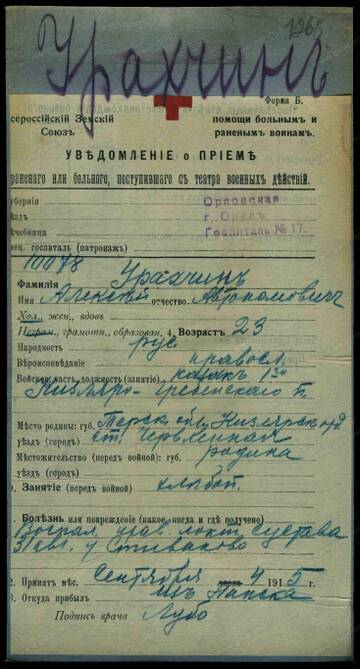 1965
Урахчинъ
Форма Б.
сероссійскій Земскій Союзъ
помощи больнымъ и раненымъ воинамъ.
УВѢДОМЛЕНІЕ о ПРІЕМѢ
раненаго или больного, поступившаго съ театра военныхъ дѣйствій.
убернія Орловская
ѣздъ г. Орелъ
ечебница Госпиталь № 17.
ец. госпиталь (патронажъ)
10078
Фамилія Урахчинъ
Имя Алексѣй отчество Автономовичъ
Хол., жен., вдовъ
Неграм., грамотн., образован. 4. Возрастъ 23
Народность рус
Вѣроисповѣданіе правосл.
Войсков. часть, должность (занятіе) казакъ 1го
Кизляро-Гребенского п.
Мѣсто родины: губ. Терск. обл. Кизлярск.
уѣздъ (городъ) ст. Червленная
Мѣстожительство (передъ войной): губ. родина
уѣздъ (городъ)
Занятіе (передъ войной) хлѣбоп.
Болѣзнь или поврежденіе (какое, когда и гдѣ получено)
Воспал. прав. локт. сустава
31 авг. у
2. Принятъ мѣс. Сентября 4 1915 г.
3. Откуда прибылъ изъ
Подпись врача